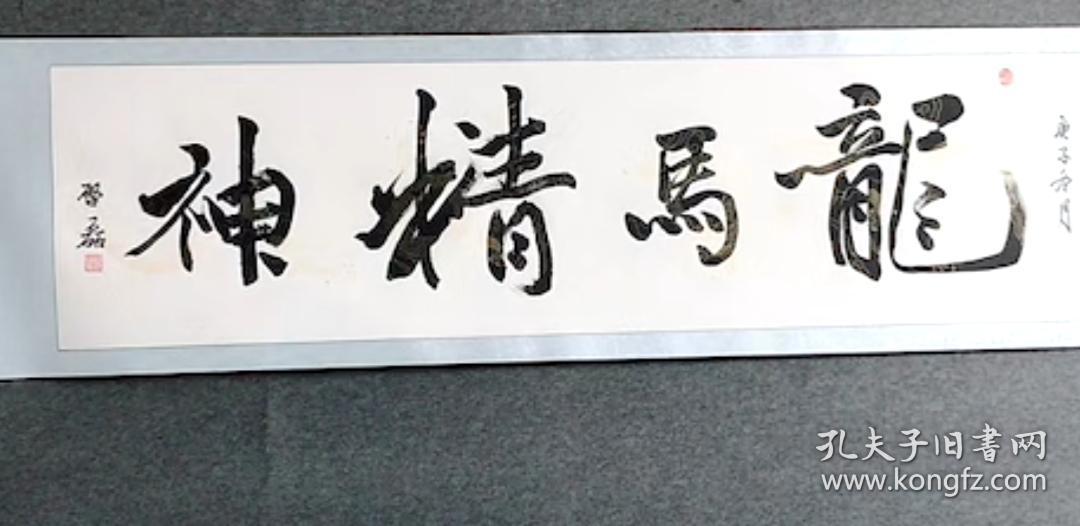 庚子冬月
龍馬精神
啓磊
孔夫子旧書网
www.kongfz.com